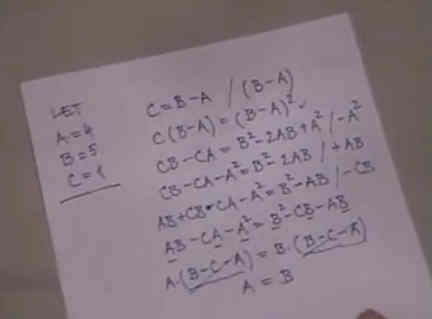 LET
A=4
B=5
C=1
C=B-A / (B-A)
C(B-A)=(B-A)²
CB-CA=B²-2AB+A² /-A²
CB-CA-A²=B²-2AB / +AB
AB+CB-CA-A²=B²-AB /-CB
AB-CA-A²=B²-CB-AB
A·(B-C-A)=B·(B-C-A)
A=B